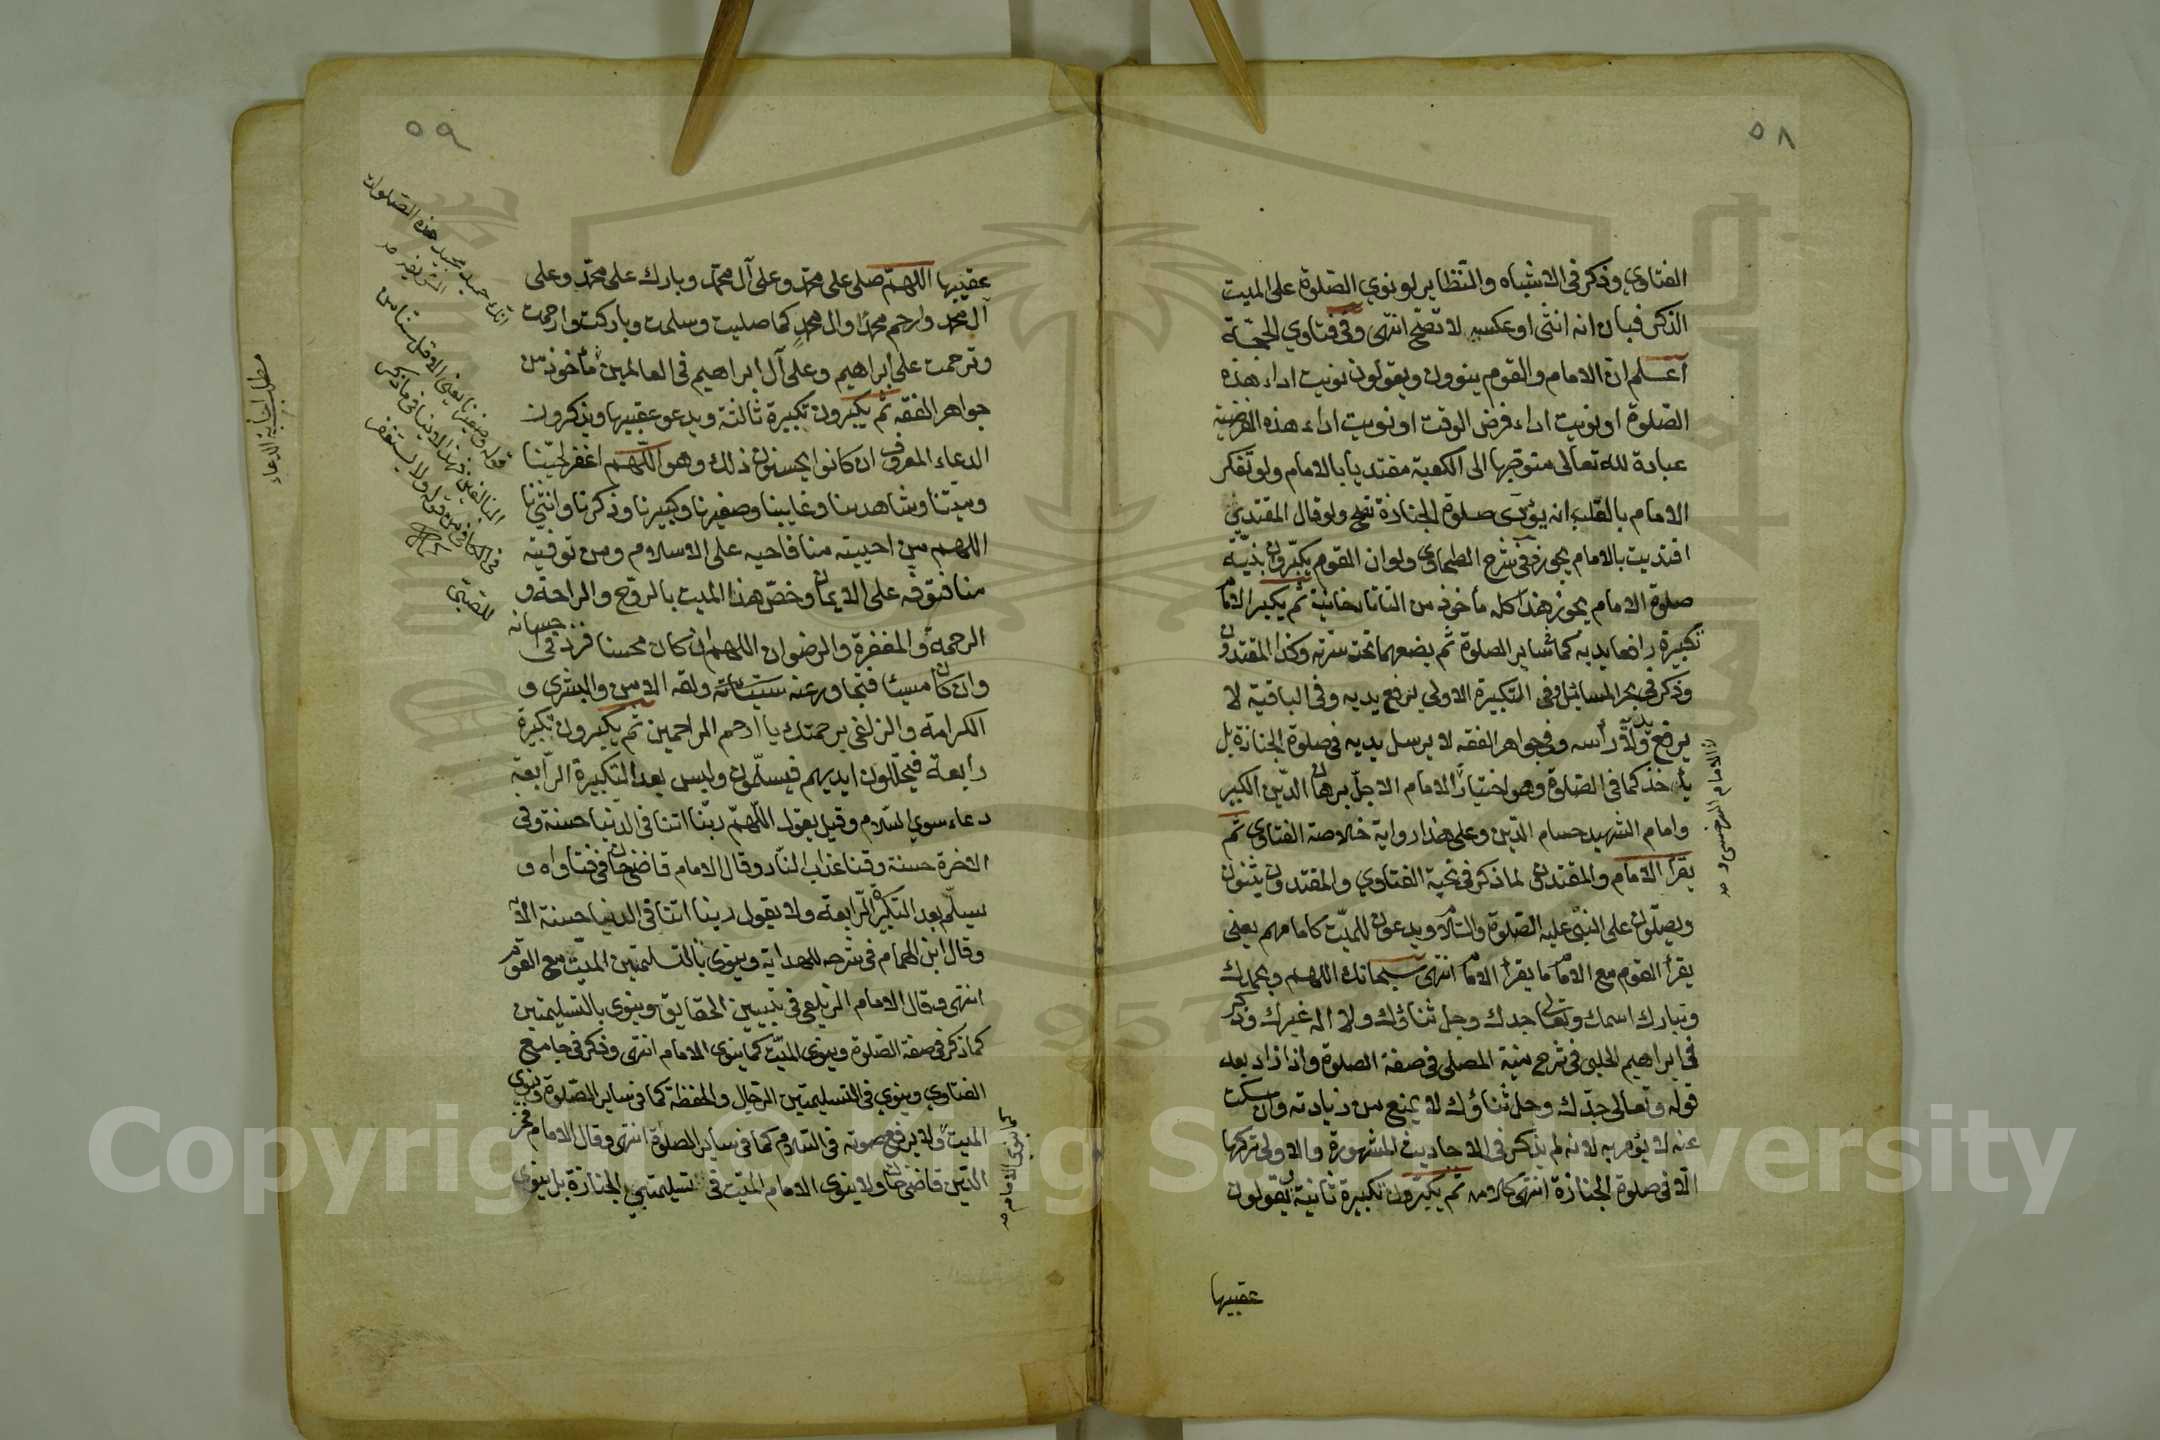 ٥٨
الفتاوي وذكر في الاشباه والنظاير لو نوي الصلوة على الميت
الذكر فبان انه انثى او عكسه لا تصح انتهى وفي فتاوي الحجة
اعلم ان الامام والقوم ينوون ويقولون نويت اداء هذه
الصلوة او نويت اداء فرض الوقت او نويت اداء هذه الفرضية
عبادة لله تعالى متوجها الى الكعبة مقتديا بالامام ولو تفكر
الامام بالقلب انه يؤدى صلوة الجنازة تصح ولو قال المقتدي
اقتديت بالامام يجوز في شرح الطحاوي ولو ان القوم يكبرون بنية
صلوة الامام يجوز هذا كله ماخوذ من التاتارخانية ثم يكبر الامام
تكبيرة رافعا يديه كما في ساير الصلوة ثم يضعهما تحت سرته وكذا المقتدون
وذكر في بحر المسائل وفي التكبيرة الاولي يرفع يديه وفي الباقية لا
يرفع يديه ولا رأسه وفي جواهر الفقه لا يرسل يديه في صلوة الجنازة بل
يأخذ كما في الصلوة وهو اختيار الامام الاجل برهان الدين الكبير
وامام الشهيد حسام الدين وعلى هذا رواية خلاصة الفتاوي ثم
يقرأ الامام والمقتدون لما ذكر في نخبة الفتاوي والمقتدون يثنون
ويصلون على النبي عليه الصلوة والسلام ويدعون للميت كامامهم يعني
يقرأ القوم مع الامام ما يقرأ الامام انتهى سبحانك اللهم وبحمدك
وتبارك اسمك وتعالى جدك وجل ثناؤك ولا اله غيرك وذكر
في ابراهيم الحلبي في شرح منية المصلي في صفة الصلوة واذا زاد بعد
قوله وتعالى جدك وجل ثناؤك لا يمنع من زيادته وان سكت
عنه لا يؤمر به لانه لم يذكر في الاحاديث المشهورة والاولى تركها
الا في صلوة الجنازة انتهى كلامه ثم يكبرون تكبيرة ثانية يقولون
عقيبها
الامام السرخسي و صح
٥٩
عقيبها اللهم صلى على محمد وعلى آل محمد وبارك على محمد وعلى
آل محمد وارحم محمدا وال محمد كما صليت وسلمت وباركت ورحمت
وترحمت على ابراهيم وعلى آل ابراهيم في العالمين مأخوذ من
جواهر الفقه ثم يكبرون تكبيرة ثالثة ويدعو عقيبها ويذكرون
الدعاء المعروف ان كانوا يحسنون ذلك وهو اللهم اغفر لحينا
وميتنا وشاهدنا وغايبنا وصغيرنا وكبيرنا وذكرنا وانثينا
اللهم من احييته منا فاحيه على الاسلام ومن توفيته
منا فتوفه على الايمان وخص هذا الميت بالروح والراحة و
الرحمة والمغفرة والرضوان اللهم ان كان محسنا فزد في احسانه
وان كان مسيئا فتجاوز عنه سيئاته ولقه الامن والبشري و
الكرامة والزلفى برحمتك يا ارحم الراحمين ثم يكبرون تكبيرة
رابعة فيحللون ايديهم فيسلمون وليس بعد التكبيرة الرابعة
دعاء سوي السلام وقيل يقول اللهم ربنا اتنا في الدنيا حسنة وفي
الاخرة حسنة وقنا عذاب النار وقال الامام قاضيخان في فتاواه و
يسلم بعد التكبيرة الرابعة ولا يقول ربنا اتنا في الدنيا حسنة الآية
وقال ابن الهمام في شرحه للهداية وينوي بالتسليمتين الميت مع القوم
انتهى وقال الامام الزيلعي في تبيين الحقايق وينوي بالتسليمتين
كما ذكر في صفة الصلوة وينوي الميت كما ينوي الامام انتهى وذكر في جامع
الفتاوي وينوي في التسليمتين الرجال والحفظة كما في ساير الصلوة وينوي
الميت ولا يرفع صوته في السلام كما في ساير الصلوة انتهى وقال الامام فخر
الدين قاضيخان ولا ينوي الامام الميت في تسليمتي الجنازة بل ينوي
كما ينوي الامام صح
انك حميد مجيد هذه الصلوات
قوله وصغيرنا يعني
للصبي
مطلب الدعاء
Copyright © King Saud University
1957